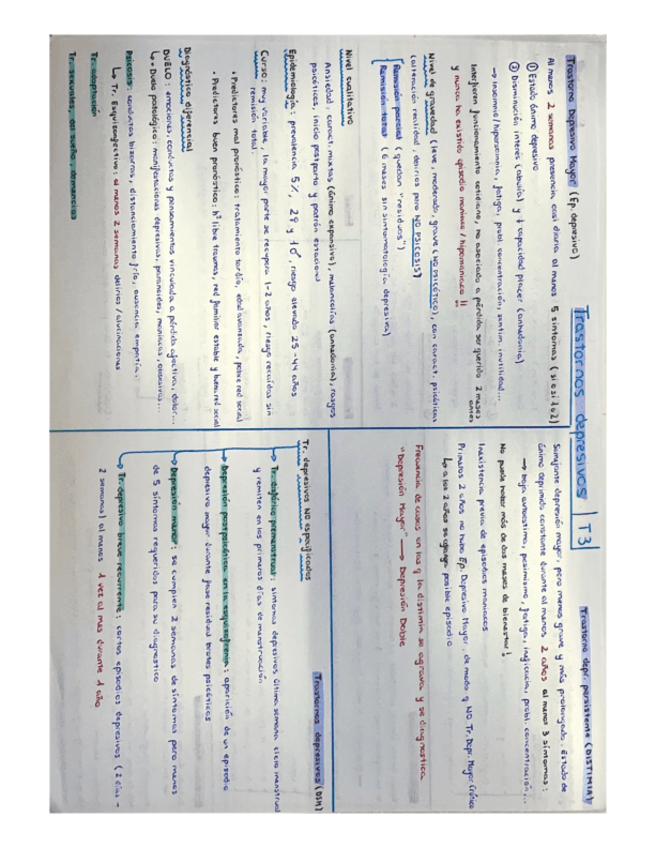 Trastornos depresivos | T3
Trastorno Depresivo Mayor (Ep. depresivo)
Al menos 2 semanas presencia casi diaria al menos 5 síntomas (si o si 1 o 2)
① Estado ánimo depresivo
② Disminución interés (abulia) y ↓ capacidad placer (anhedonia)
→ Insomnio/hipersomnia, fatiga, probl. concentración, sentim. inutilidad...
Interfieren funcionamiento cotidiano, no asociado a pérdida ser querido 2 meses antes
y nunca ha existido episodio maniaco / hipomaniaco !!
Nivel de gravedad (leve, moderado, grave (NO PSICÓTICO), con caract. psicóticas
(alteración realidad, delirios pero NO PSICOSIS)
Remisión parcial (quedan "residuos")
Remisión total (6 meses sin sintomatología depresiva)
Nivel cualitativo
Ansiedad, caract. mixtas (ánimo expansivo), melancolías (anhedonia), rasgos
psicóticos, inicio postparto y patrón estacional
Epidemiología: prevalencia 5%, 2♀ y 1♂, riesgo elevado 25-44 años
Curso: muy variable, la mayor parte se recupera 1-2 años, riesgo recaídas sin
remisión total.
• Predictores mal pronóstico: tratamiento tardío, edad avanzada, pobre red social
• Predictores buen pronóstico: hª libre traumas, red familiar estable y buena red social
Diagnóstico diferencial
DUELO: emociones, conductas y pensamientos vinculada a pérdida afectiva, dolor...
↳ Duelo patológico: manifestaciones depresivas, paranoides, maniacas, obsesivas...
Psicosis: conductas bizarras, distanciamiento frío, ausencia empatía.
↳ Tr. Esquizoafectivo: al menos 2 semanas delirios / alucinaciones
Tr. adaptación
Tr. sexuales, del sueño, demencias
Trastorno depr. persistente (DISTIMIA)
Semejante depresión mayor, pero menos grave y más prolongado. Estado de
ánimo deprimido constante durante al menos 2 años al menos 3 síntomas:
→ baja autoestima, pesimismo, fatiga, ineficacia, probl. concentración...
No puede haber más de dos meses de bienestar!
Inexistencia previa de episodios maniacos
Primeros 2 años no hubo Ep. Depresivo Mayor, de modo q NO Tr. Depr. Mayor Crónico
↳ a los 2 años se agrega posible episodio
Frecuencia de casos en los q la distimia se agrava y se diagnostica
"Depresión Mayor" → Depresión Doble
Trastornos depresivos (DSM)
Tr. depresivos NO especificados
→ Tr. disfórico premenstrual: síntomas depresivos última semana ciclo menstrual
y remiten en los primeros días de menstruación
→ Depresión postpsicótica en la esquizofrenia: aparición de un episodio
depresivo mayor durante fase residual brotes psicóticos
→ Depresión menor: se cumplen 2 semanas de síntomas pero menos
de 5 síntomas requeridos para su diagnóstico
→ Tr. depresivo breve recurrente: cortos episodios depresivos (2 días -
2 semanas) al menos 1 vez al mes durante 1 año